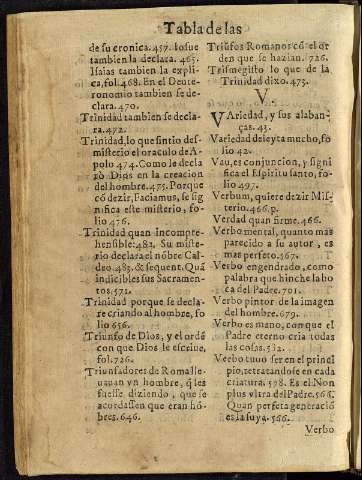 Tabla de las
de su cronica.457. Iosue
tambien la declara. 465.
Isaias tambien la expli
ca, fol. 468. En el Deute-
ronomio tambien se de-
clara. 470.
Trinidad tambien se decla-
ra. 472.
Trinidad, lo que sintio des-
misterio el oraculo de A-
polo 474. Como le decla
rò Dios en la creacion
del hombre. 475. Porque
cō dezir, Faciamus, se sig
nifica este misterio, fo
lio 476.
Trinidad quan incompre-
hensible: 482. Su miste-
rio declara el nōbre Cal-
deo. 483. & sequent. Quā
indicibles sus Sacramen-
tos. 572.
Trinidad porque se decla-
re criando al hombre, fo
lio 656.
Triunfo de Dios, y el ordē
con que Dios le escriue,
fol. 726.
Triunfadores de Roma lle-
uauan vn hombre, q̄ les
fuesse diziendo, que se
acordassen que eran hō-
bres. 646.
Triūfos Romanos cō el or
den que se hazian. 726.
Trismegisto lo que de la
Trinidad dixo. 473.
V.
Variedad, y sus alaban-
ças. 43.
Variedad deleyta mucho, fo
lio 42.
Vau, es conjuncion, y signi
fica el Espiritu santo, fo
lio 497.
Verbum, quiere dezir Mis-
terio. 466. p.
Verdad quan firme. 466.
Verbo mental, quanto mas
parecido a su autor, es
mas perfeto. 467.
Verbo engendrado, como
palabra que hinche la bo
ca del Padre. 701.
Verbo pintor de la imagen
del hombre. 679.
Verbo es mano, con que el
Padre eterno cria todas
las cosas. 532.
Verbo tuuo ser en el princi
pio, tetratandose en cada
criatura. 598. Es el Non
plus vltra del Padre. 566.
Quan perfeta generaciō
es la suya. 566.
Verbo